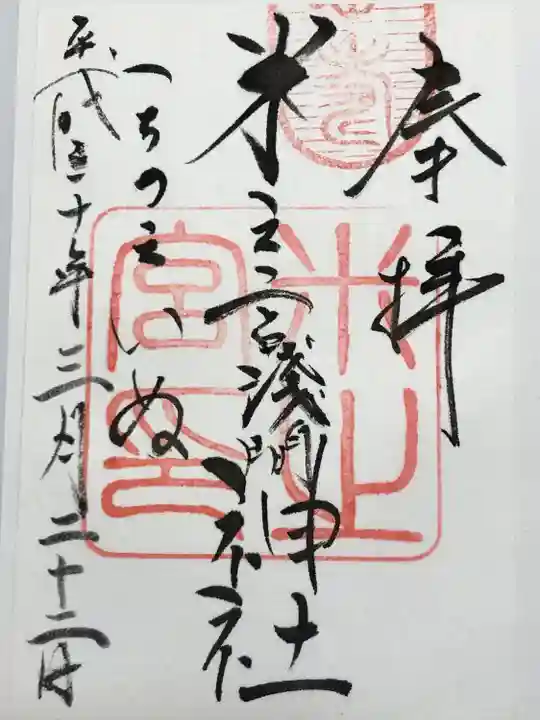 奉拝
米之宮浅間神社
つちのえいぬ
平成三十年三月二十二日
米之宮印